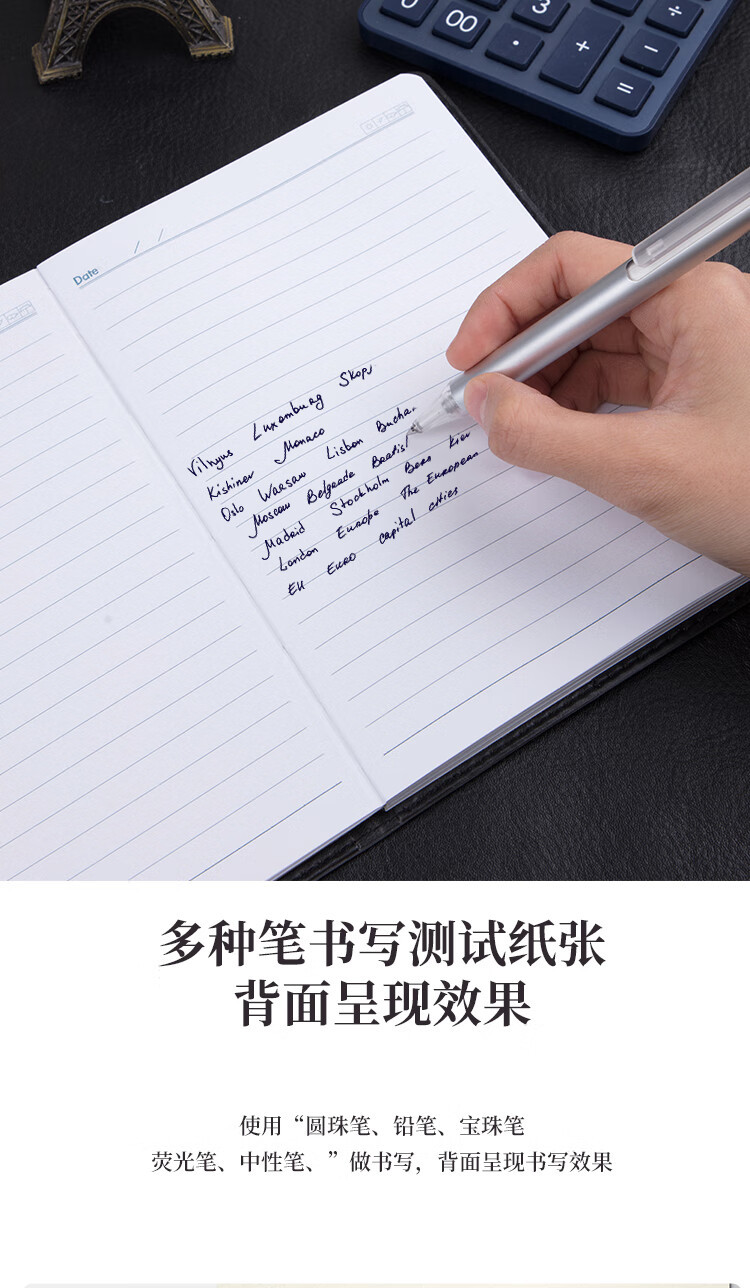 00
3
÷
·
+
−
=
Date / /
Vilnyus Luxemburg Skopj
Kishinev Monaco
Oslo Warsaw Lisbon Bucha
Moscow Belgrade Bratisl
Madrid Stockholm Bern Kiev
London Europe The European
EU Euro capital cities
多种笔书写测试纸张
背面呈现效果
使用“圆珠笔、铅笔、宝珠笔
荧光笔、中性笔、”做书写，背面呈现书写效果